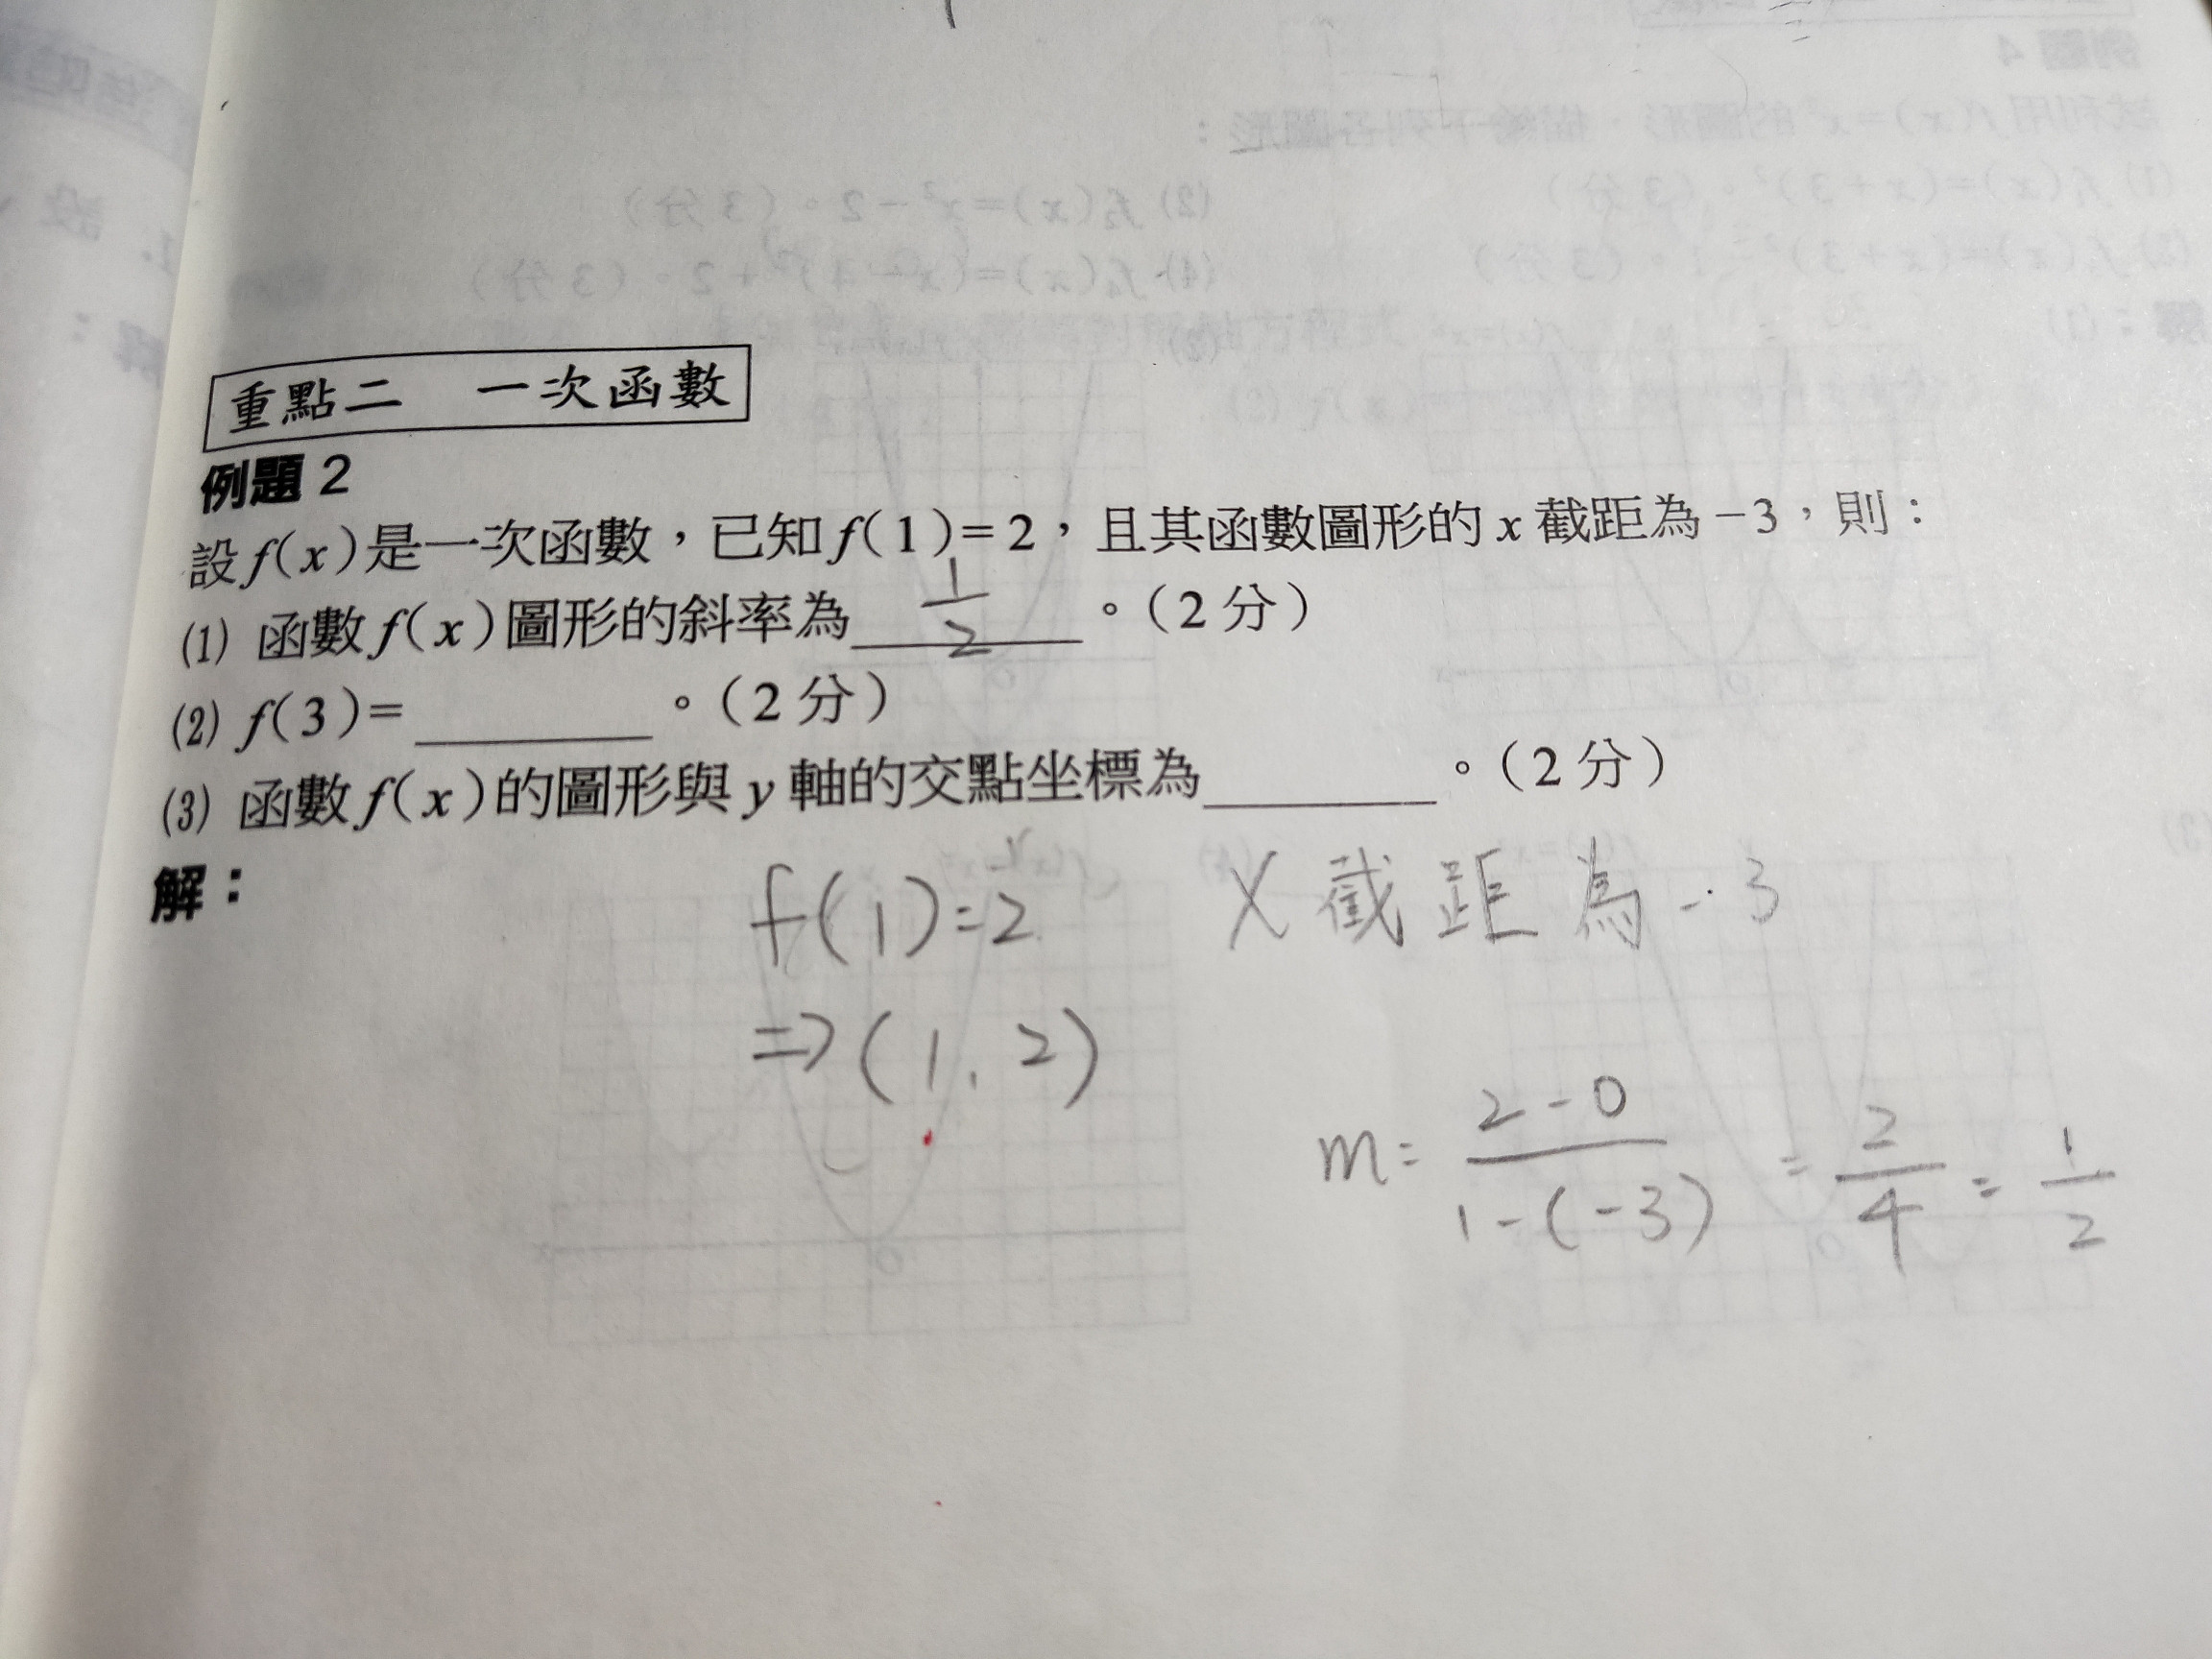 重點二　一次函數
例題 2
設 f(x) 是一次函數，已知 f(1)=2，且其函數圖形的 x 截距為 −3，則：
(1) 函數 f(x) 圖形的斜率為 1/2 。（2 分）
(2) f(3)= ______ 。（2 分）
(3) 函數 f(x) 的圖形與 y 軸的交點坐標為 ______ 。（2 分）
解：
f(1)=2　X 截距為 -3
⇒(1, 2)
m= (2-0)/(1-(-3)) = 2/4 = 1/2